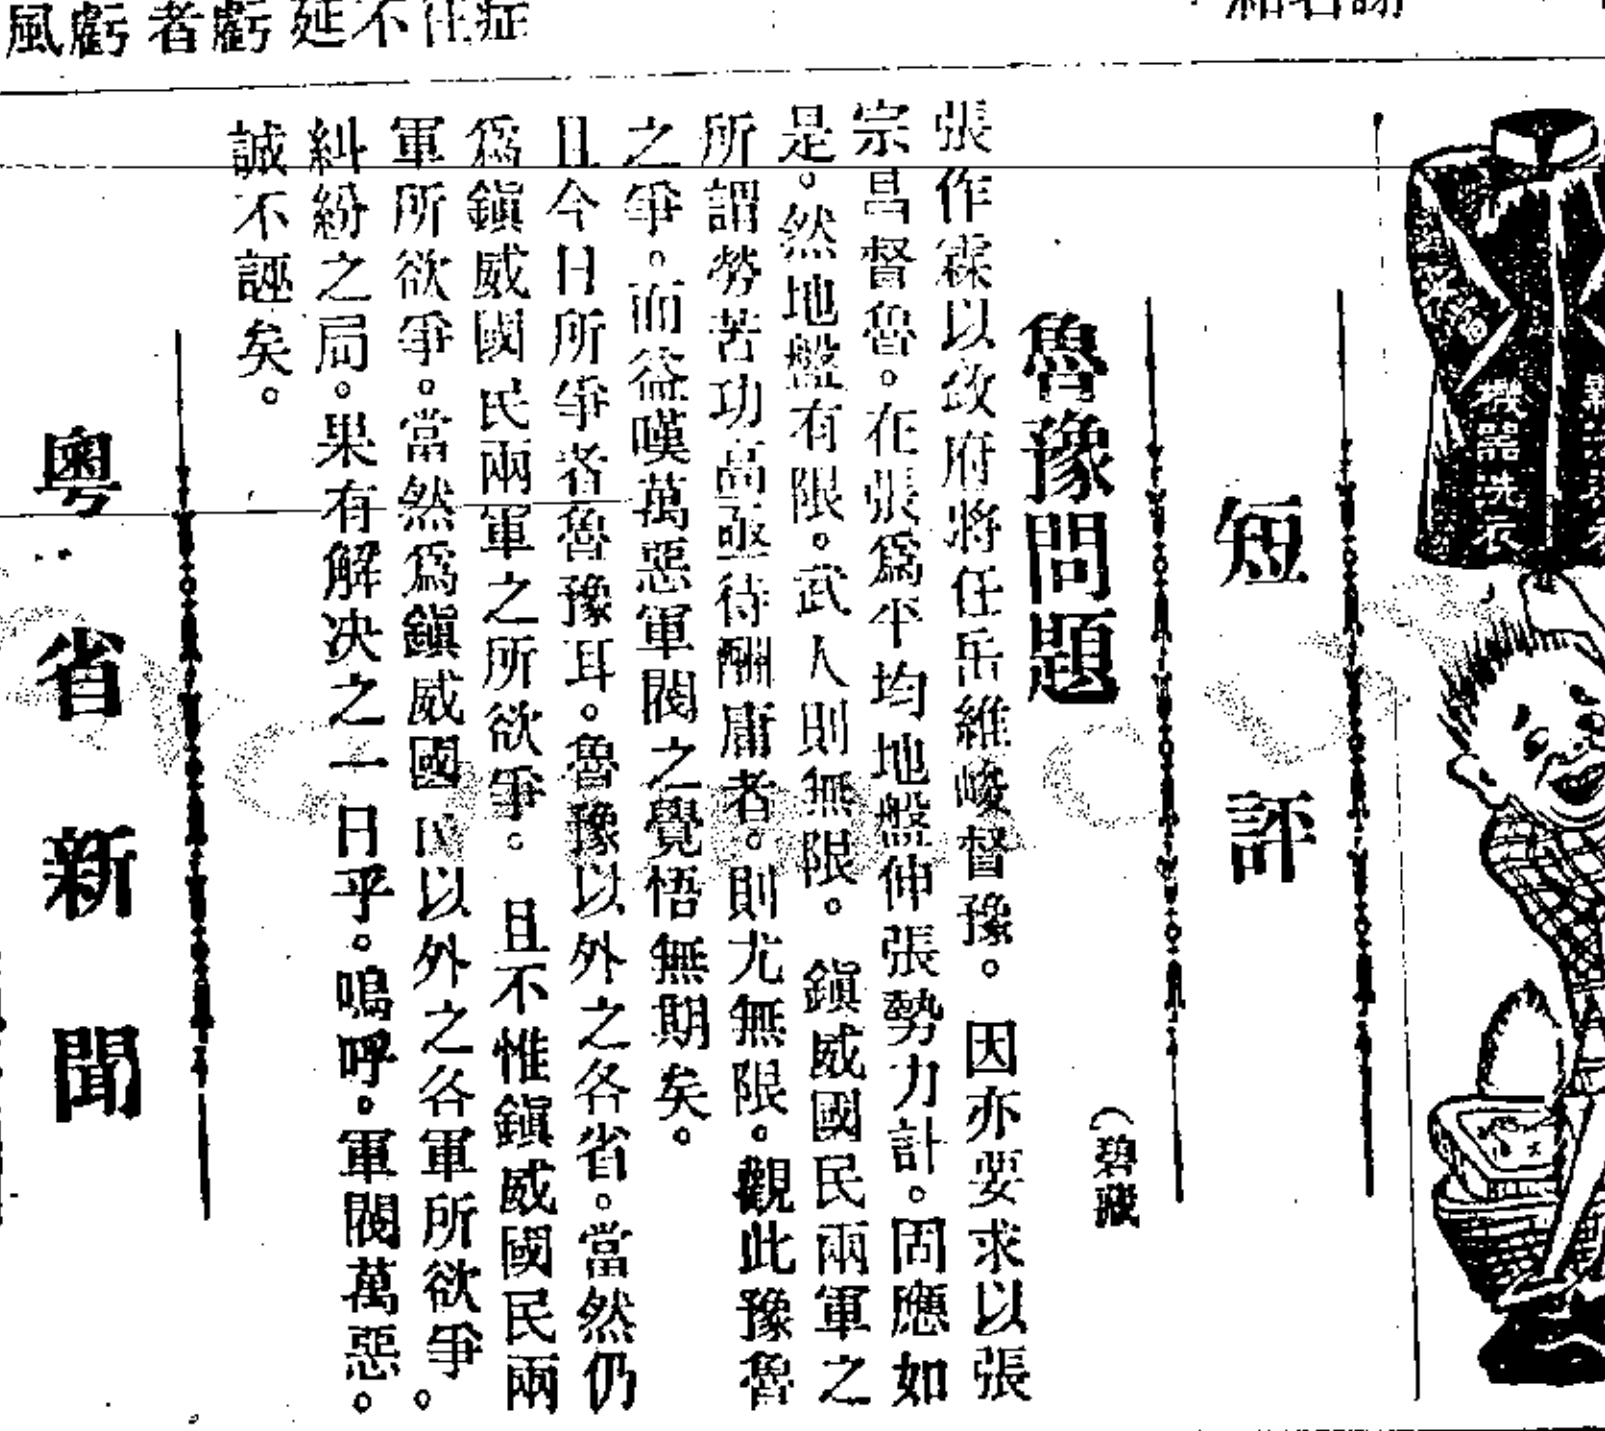 機器洗衣
短評
魯豫問題
(碧藏
張作霖以政府將任岳維峻督豫。因亦要求以張
宗昌督魯。在張爲平均地盤伸張勢力計。固應如
是。然地盤有限。武人則無限。鎭威國民兩軍之
所謂勞苦功高亟待酬庸者。則尤無限。觀此豫魯
之爭。而益嘆萬惡軍閥之覺悟無期矣。
且今日所爭者魯豫耳。魯豫以外之各省。當然仍
爲鎭威國民兩軍之所欲爭。且不惟鎭威國民兩
軍所欲爭。當然爲鎭威國民以外之各軍所欲爭。
糾紛之局。果有解决之一日乎。嗚呼。軍閥萬惡。
誠不誣矣。
粵省新聞